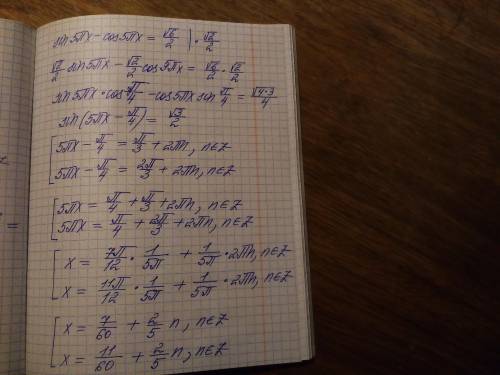 sin 5πx - cos 5πx = √6/2 | · √2/2
√2/2 sin 5πx - √2/2 cos 5πx = √6/2 · √2/2
sin 5πx · cos π/4 - cos 5πx sin π/4 = √(4·3)/4
sin (5πx - π/4) = √3/2
[ 5πx - π/4 = π/3 + 2πn, n∈Z
5πx - π/4 = 2π/3 + 2πn, n∈Z
[ 5πx = π/4 + π/3 + 2πn, n∈Z
5πx = π/4 + 2π/3 + 2πn, n∈Z
[ x = 7π/12 · 1/5π + 1/5π · 2πn, n∈Z
x = 11π/12 · 1/5π + 1/5π · 2πn, n∈Z
[ x = 7/60 + 2/5 n, n∈Z
x = 11/60 + 2/5 n, n∈Z
=